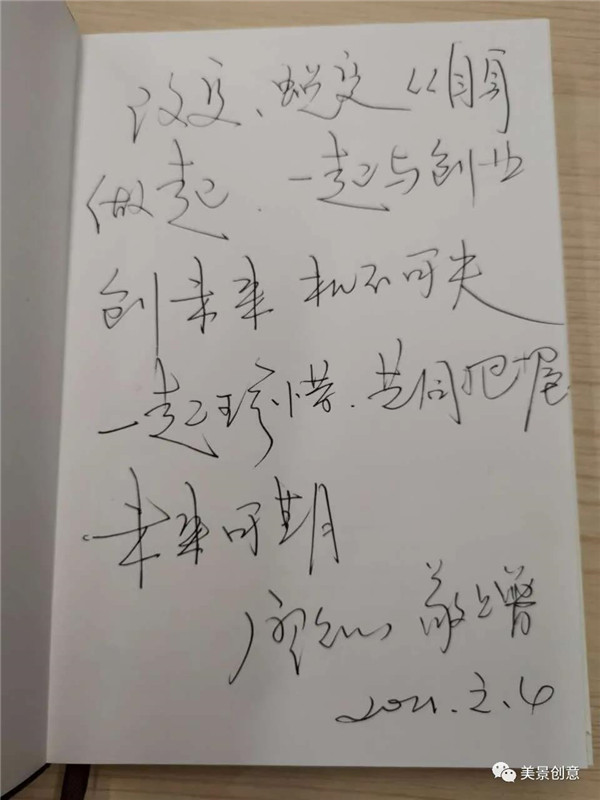 改变、蜕变 从自身
做起.一起与创业
创未来 机不可失
一起珍惜.共同把握
未来可期
敬增
2021.2.4
美景创意